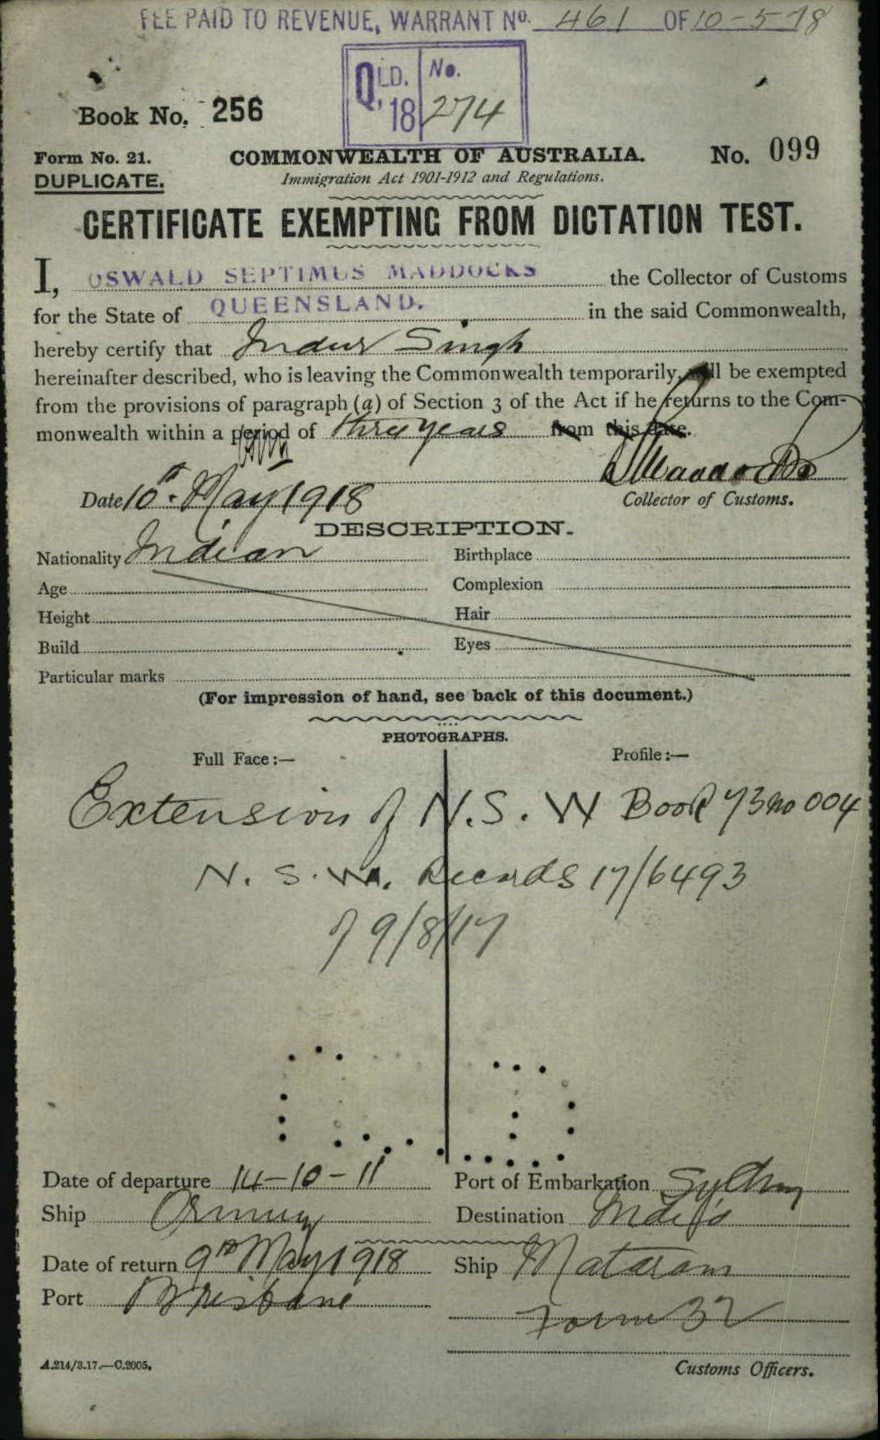 FEE PAID TO REVENUE, WARRANT No. 461 OF 10-5-18
QLD. '18 No. 274
Book No. 256
Form No. 21. COMMONWEALTH OF AUSTRALIA. No. 099
DUPLICATE. Immigration Act 1901-1912 and Regulations.
CERTIFICATE EXEMPTING FROM DICTATION TEST.
I, OSWALD SEPTIMUS MADDOCKS the Collector of Customs
for the State of QUEENSLAND. in the said Commonwealth,
hereby certify that Indur Singh
hereinafter described, who is leaving the Commonwealth temporarily, will be exempted
from the provisions of paragraph (a) of Section 3 of the Act if he returns to the Com-
monwealth within a period of three years from this date.
O S Maddocks
Date 10th May 1918 Collector of Customs.
DESCRIPTION.
Nationality Indian Birthplace
Age Complexion
Height Hair
Build Eyes
Particular marks
(For impression of hand, see back of this document.)
PHOTOGRAPHS.
Full Face:— Profile:—
Extension of N.S.W Book 73 no 004
N.S.W. Records 17/6493
of 9/8/17
Date of departure 14-10-11 Port of Embarkation Sydney
Ship Ormuz Destination India
Date of return 9th May 1918 Ship Mataram
Port Brisbane
Form 32
A.214/3.17.—C.2005. Customs Officers.